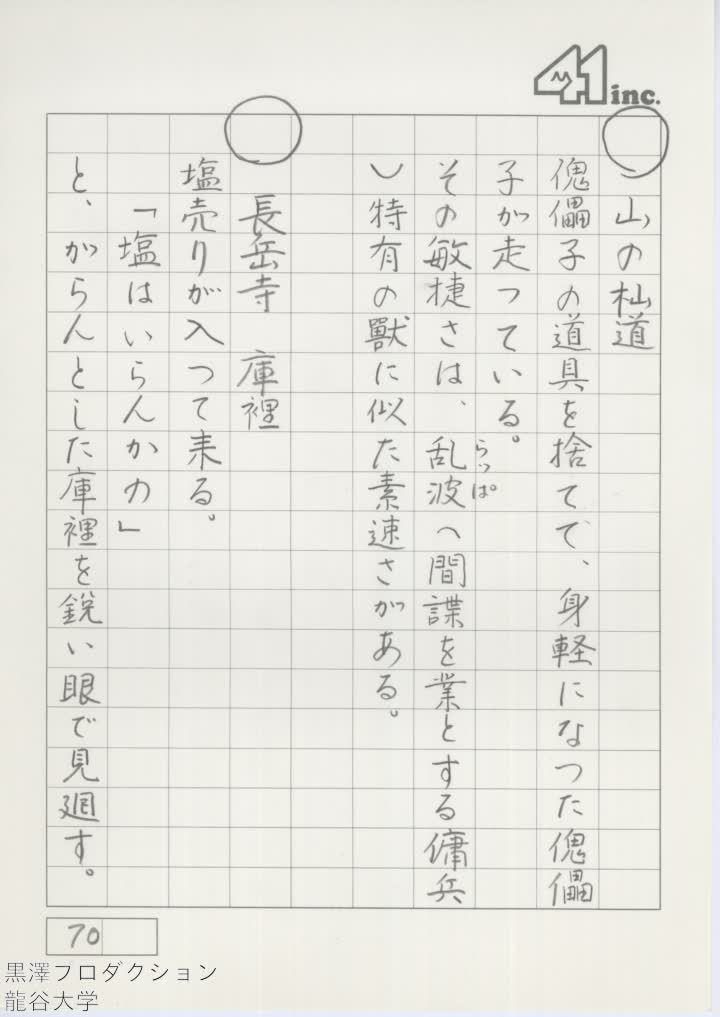 41 inc.
山の杣道
傀儡子の道具を捨てて、身軽になつた傀儡
子が走つている。
らっぱ
その敏捷さは、乱波へ間諜を業とする傭兵
︶特有の獣に似た素速さがある。
長岳寺 庫裡
塩売りが入つて来る。
「塩はいらんかの」
と、がらんとした庫裡を鋭い眼で見廻す。
70
黒澤プロダクション
龍谷大学